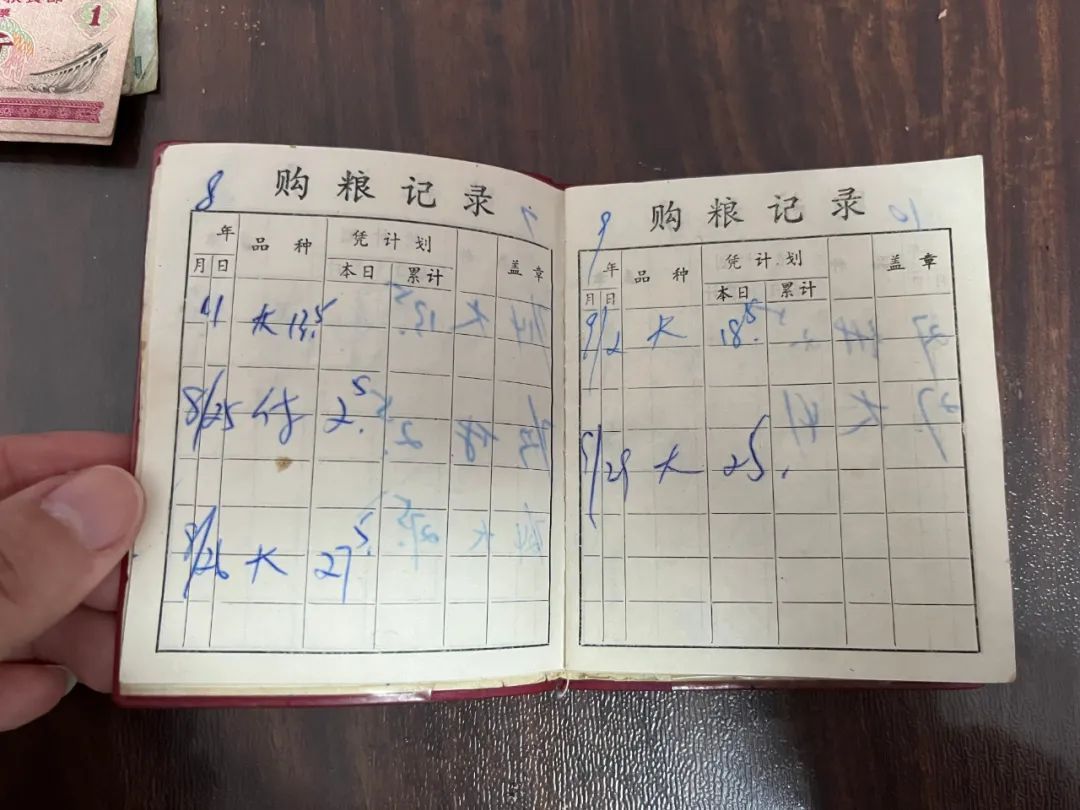 1
8
购粮记录
年
品种
凭计划
盖章
月 日
本日
累计
11 大 13.5
8/25 2.5
8/26 大 27.5
9
购粮记录
10
年
品种
凭计划
盖章
月 日
本日
累计
9/2 大 18.5
9/29 大 25.